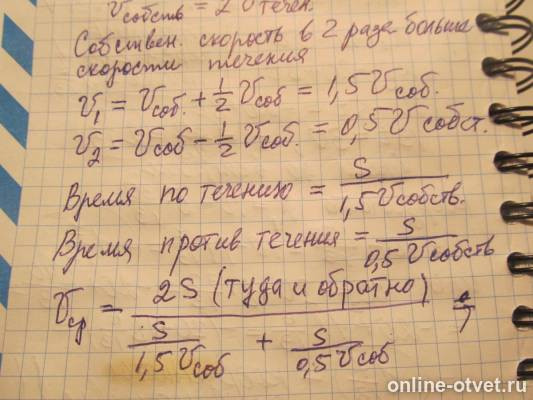 Vсобств = 2 Vтечен.
Собствен. скорость в 2 раза больше
скорости течения
V₁ = Vсоб. + 1/2 Vсоб = 1,5 Vсоб.
V₂ = Vсоб − 1/2 Vсоб. = 0,5 Vсобст.
Время по течению = S / 1,5 Vсобств.
Время против течения = S / 0,5 Vсобств
Vср = 2S (туда и обратно) / (S / 1,5 Vсоб + S / 0,5 Vсоб)
online-otvet.ru